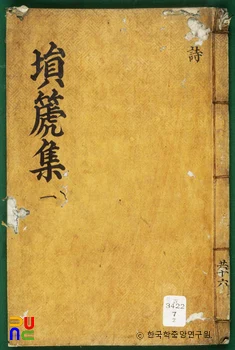 詩
塤篪集
一
共十六
3422
7
ⓒ 한국학중앙연구원